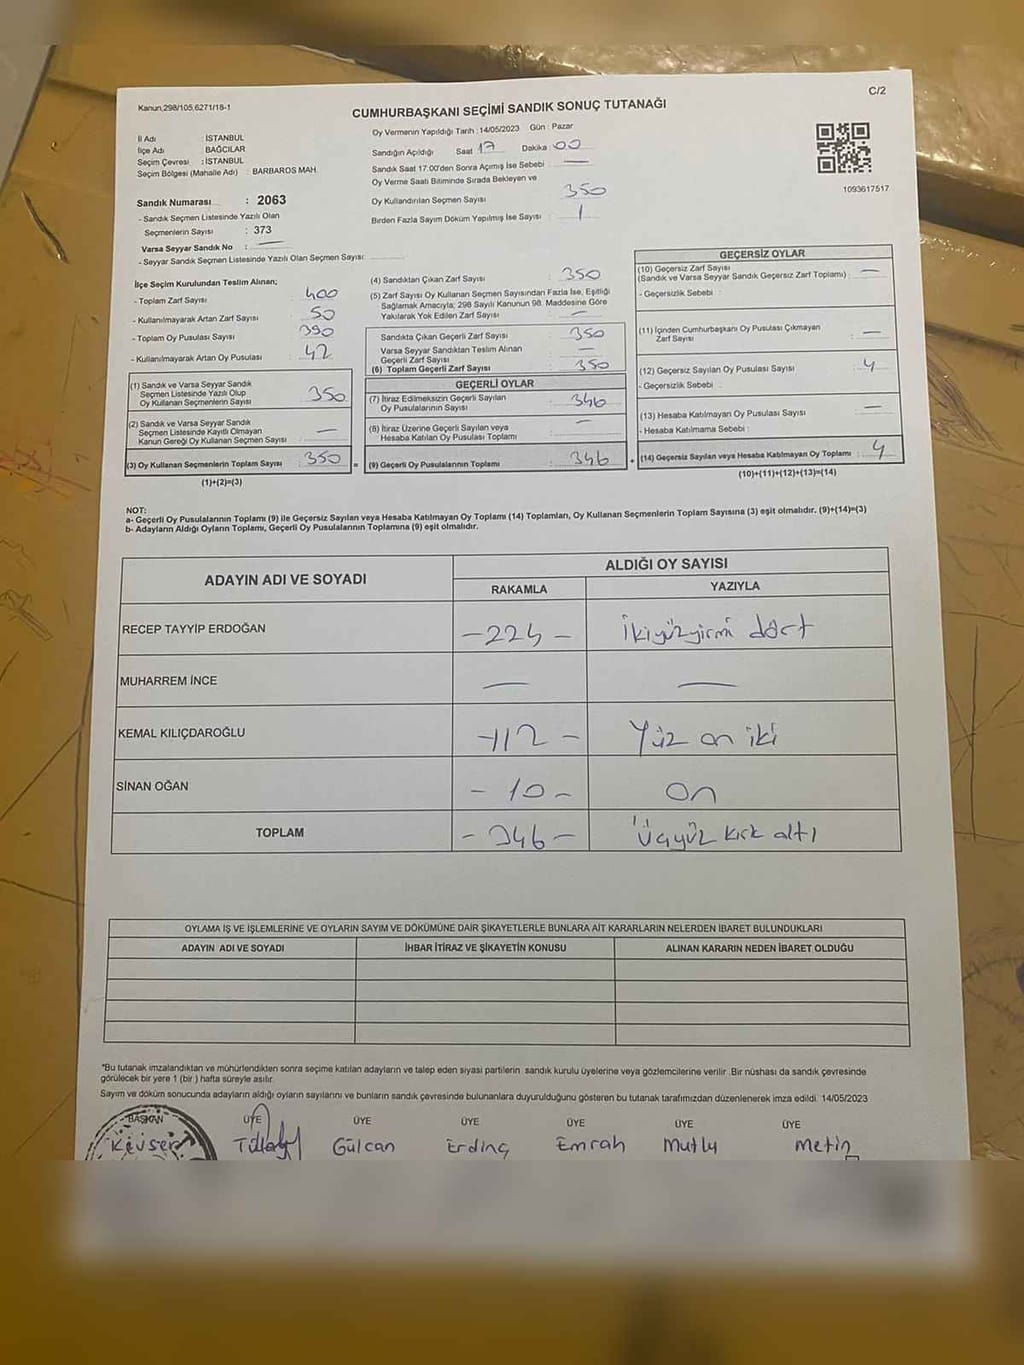 Kanun,298/105,6271/18-1
C/2
CUMHURBAŞKANI SEÇİMİ SANDIK SONUÇ TUTANAĞI
İl Adı : İSTANBUL
İlçe Adı : BAĞCILAR
Seçim Çevresi : İSTANBUL
Seçim Bölgesi (Mahalle Adı) : BARBAROS MAH.
Oy Vermenin Yapıldığı Tarih : 14/05/2023 Gün : Pazar
Sandığın Açıldığı Saat 17 Dakika : 00
Sandık Saat 17:00'den Sonra Açımış İse Sebebi : —
Oy Verme Saati Bitiminde Sırada Bekleyen ve
Oy Kullandırılan Seçmen Sayısı 350
Birden Fazla Sayım Döküm Yapılmış İse Sayısı : 1
1093617517
Sandık Numarası : 2063
- Sandık Seçmen Listesinde Yazılı Olan
Seçmenlerin Sayısı : 373
Varsa Seyyar Sandık No : —
- Seyyar Sandık Seçmen Listesinde Yazılı Olan Seçmen Sayısı:
İlçe Seçim Kurulundan Teslim Alınan;
- Toplam Zarf Sayısı : 400
- Kullanılmayarak Artan Zarf Sayısı : 50
- Toplam Oy Pusulası Sayısı : 390
- Kullanılmayarak Artan Oy Pusulası : 42
(1) Sandık ve Varsa Seyyar Sandık
Seçmen Listesinde Yazılı Olup
Oy Kullanan Seçmenlerin Sayısı : 350
(2) Sandık ve Varsa Seyyar Sandık
Seçmen Listesinde Kayıtlı Olmayan
Kanun Gereği Oy Kullanan Seçmen Sayısı : —
(3) Oy Kullanan Seçmenlerin Toplam Sayısı : 350
(1)+(2)=(3)
(4) Sandıktan Çıkan Zarf Sayısı : 350
(5) Zarf Sayısı Oy Kullanan Seçmen Sayısından Fazla İse, Eşitliği
Sağlamak Amacıyla; 298 Sayılı Kanunun 98. Maddesine Göre
Yakılarak Yok Edilen Zarf Sayısı : —
Sandıkta Çıkan Geçerli Zarf Sayısı : 350
Varsa Seyyar Sandıktan Teslim Alınan
Geçerli Zarf Sayısı : —
(6) Toplam Geçerli Zarf Sayısı : 350
GEÇERLİ OYLAR
(7) İtiraz Edilmeksizin Geçerli Sayılan
Oy Pusulalarının Sayısı : 346
(8) İtiraz Üzerine Geçerli Sayılan veya
Hesaba Katılan Oy Pusulası Toplamı : —
= (9) Geçerli Oy Pusulalarının Toplamı : 346
GEÇERSİZ OYLAR
(10) Geçersiz Zarf Sayısı
(Sandık ve Varsa Seyyar Sandık Geçersiz Zarf Toplamı) : —
- Geçersizlik Sebebi :
(11) İçinden Cumhurbaşkanı Oy Pusulası Çıkmayan
Zarf Sayısı : —
(12) Geçersiz Sayılan Oy Pusulası Sayısı : 4
- Geçersizlik Sebebi :
(13) Hesaba Katılmayan Oy Pusulası Sayısı : —
- Hesaba Katılmama Sebebi :
+ (14) Geçersiz Sayılan veya Hesaba Katılmayan Oy Toplamı : 4
(10)+(11)+(12)+(13)=(14)
NOT:
a- Geçerli Oy Pusulalarının Toplamı (9) ile Geçersiz Sayılan veya Hesaba Katılmayan Oy Toplamı (14) Toplamları, Oy Kullanan Seçmenlerin Toplam Sayısına (3) eşit olmalıdır. (9)+(14)=(3)
b- Adayların Aldığı Oyların Toplamı, Geçerli Oy Pusulalarının Toplamına (9) eşit olmalıdır.
ADAYIN ADI VE SOYADI ALDIĞI OY SAYISI
RAKAMLA YAZIYLA
RECEP TAYYİP ERDOĞAN -224- İkiyüzyirmi dört
MUHARREM İNCE — —
KEMAL KILIÇDAROĞLU -112- Yüz on iki
SİNAN OĞAN -10- On
TOPLAM -346- Üçyüz kırk altı
OYLAMA İŞ VE İŞLEMLERİNE VE OYLARIN SAYIM VE DÖKÜMÜNE DAİR ŞİKAYETLERLE BUNLARA AİT KARARLARIN NELERDEN İBARET BULUNDUKLARI
ADAYIN ADI VE SOYADI İHBAR İTİRAZ VE ŞİKAYETİN KONUSU ALINAN KARARIN NEDEN İBARET OLDUĞU
*Bu tutanak imzalandıktan ve mühürlendikten sonra seçime katılan adayların ve talep eden siyasi partilerin sandık kurulu üyelerine veya gözlemcilerine verilir .Bir nüshası da sandık çevresinde
görülecek bir yere 1 (bir ) hafta süreyle asılır.
Sayım ve döküm sonucunda adayların aldığı oyların sayılarını ve bunların sandık çevresinde bulunanlara duyurulduğunu gösteren bu tutanak tarafımızdan düzenlenerek imza edildi. 14/05/2023
BAŞKAN ÜYE ÜYE ÜYE ÜYE ÜYE ÜYE
Kevser Gülcan Erdinç Emrah Mutlu Metin